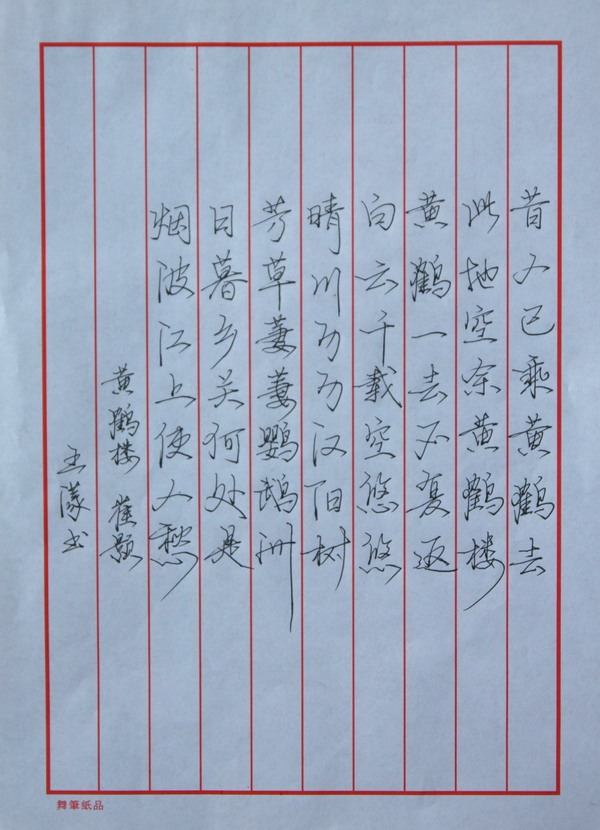 昔人已乘黄鹤去
此地空余黄鹤楼
黄鹤一去不复返
白云千载空悠悠
晴川历历汉阳树
芳草萋萋鹦鹉洲
日暮乡关何处是
烟波江上使人愁
黄鹤楼 崔颢
王濛书
舞筆纸品